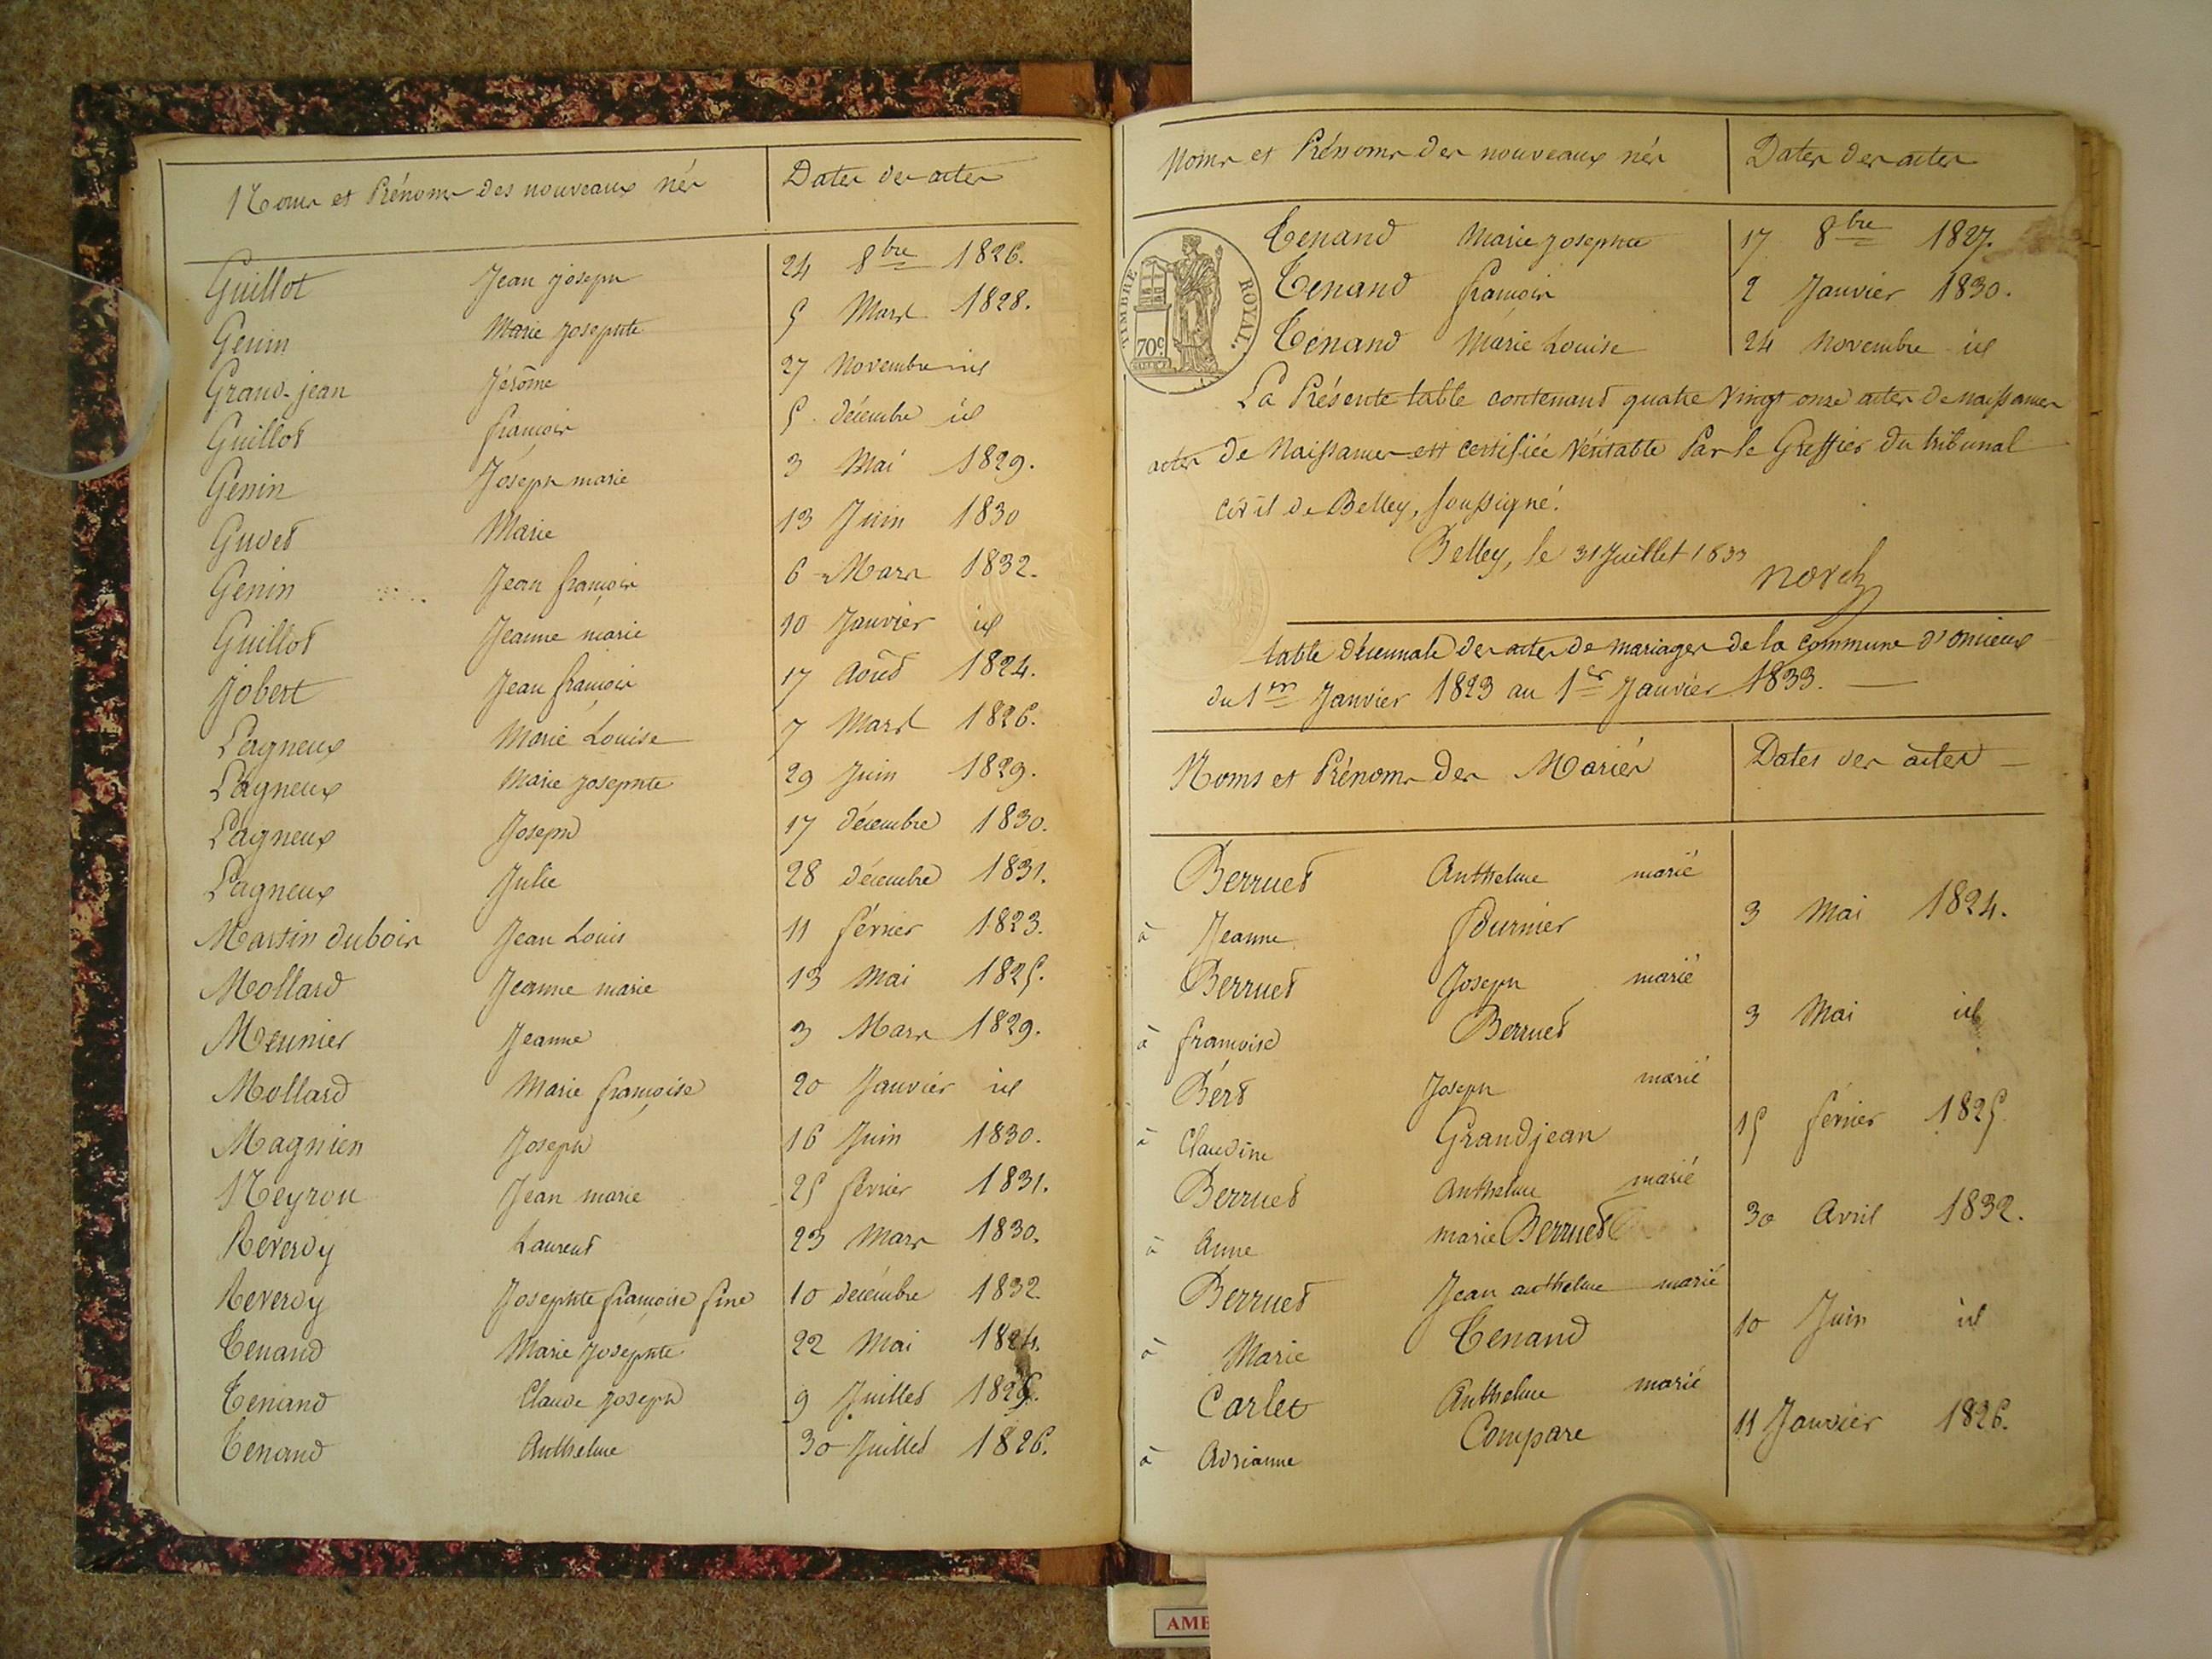 Noms et Prénoms des nouveaux nés Dates des actes
Guillot Jean joseph 24 8bre 1826.
Genin Marie josephte 5 Mars 1828.
Grand-jean Jérôme 27 Novembre id
Guillot françois 5 décembre id
Genin Joseph marie 3 Mai 1829.
Guvet Marie 13 Juin 1830
Genin Jean françois 6 Mars 1832.
Guillot Jeanne marie 10 Janvier id
Jobert Jean françois 17 Août 1824.
Pagneux Marie Louise 7 Mars 1826.
Pagneux Marie josephte 29 Juin 1829.
Pagneux Joseph 17 décembre 1830.
Pagneux Julie 28 décembre 1831.
Martin dubois Jean Louis 11 février 1823.
Mollard Jeanne marie 13 Mai 1825.
Meunier Jeanne 3 Mars 1829.
Mollard Marie françoise 20 Janvier id
Magnien Joseph 16 Juin 1830.
Neyron Jean marie 25 février 1831.
Reveroy Laurent 23 Mars 1830.
Reveroy Josephte françoise fine 10 décembre 1832.
Tenand Marie Josephte 22 Mai 1824.
Tenand Claude joseph 9 Juillet 1825.
Tenand Anthelme 30 Juillet 1826.
Noms et Prénoms des nouveaux nés Dates des actes
TIMBRE ROYAL.
70c
Tenand Marie josephte 17 8bre 1827.
Tenand françois 2 Janvier 1830.
Tenand Marie Louise 24 Novembre id
La Présente table contenant quatre vingt onze actes de naissances
actes de Naissances est certifiée Véritable Par le Greffier du tribunal
civil de Belley, soussigné.
Belley, le 31 Juillet 1833
table décennale des actes de mariages de la commune d'onnieux
du 1er Janvier 1823 au 1er Janvier 1833.
Noms et Prénoms des Mariés Dates des actes
Berruet Anthelme marié
à Jeanne fournier 3 Mai 1824.
Berruet Joseph marié
à françoise Berruet 3 Mai id
Bert Joseph marié
à Claudine Grandjean 15 février 1825.
Berruet Anthelme marié
à Anne marie Berruet 30 Avril 1832.
Berruet Jean anthelme marié
à Marie Tenand 10 Juin id
Carlet Anthelme marié
à Adrianne Compare 11 Janvier 1826.
AME